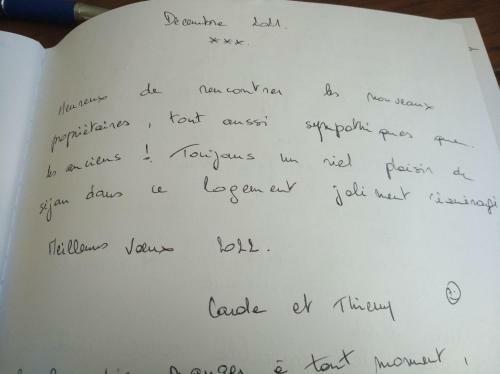 Décembre 2021.
***.
Heureux de rencontrer les nouveaux
propriétaires, tout aussi sympathiques que
les anciens ! Toujours un réel plaisir de
séjour dans ce logement joliment réaménagé
Meilleurs Vœux 2022.
Carole et Thierry
à tout moment,